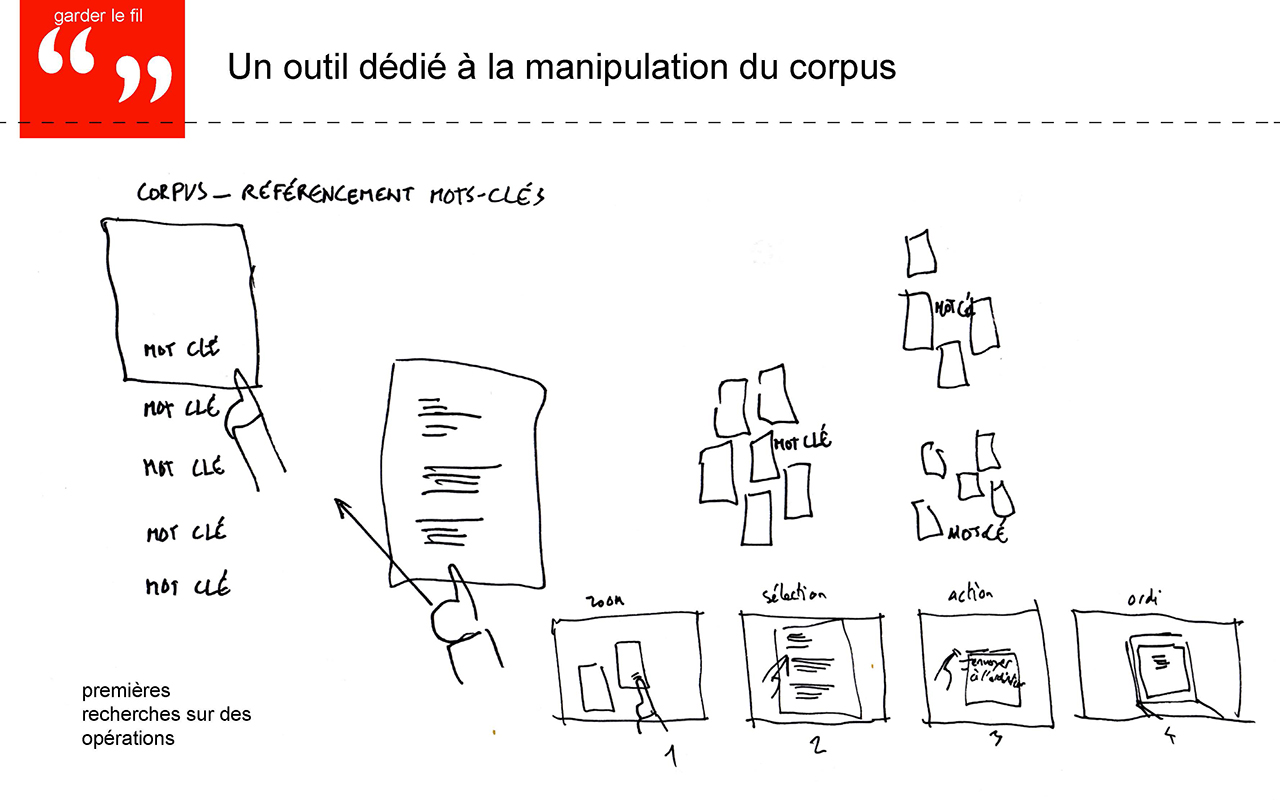 garder le fil
“ ”
Un outil dédié à la manipulation du corpus
CORPUS – RÉFÉRENCEMENT MOTS-CLÉS
MOT CLÉ
MOT CLÉ
MOT CLÉ
MOT CLÉ
MOT CLÉ
MOT CLÉ
MOT CLÉ
MOT CLÉ
zoom
sélection
action
ordi
envoyer
à l'ordinateur
1
2
3
4
premières
recherches sur des
opérations